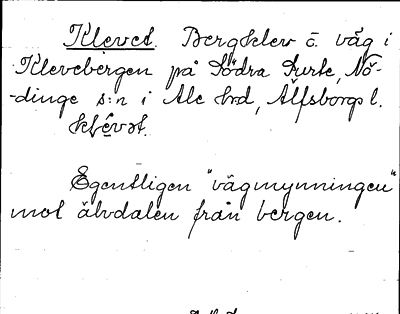 Klevet. Bergklev o. väg i
Klevebergen på Södra Surte, Nö-
-dinge s:n i Ale hrd, Älfsborgs l.
klevət.
Egentligen "vägmynningen"
mot älvdalen från bergen.